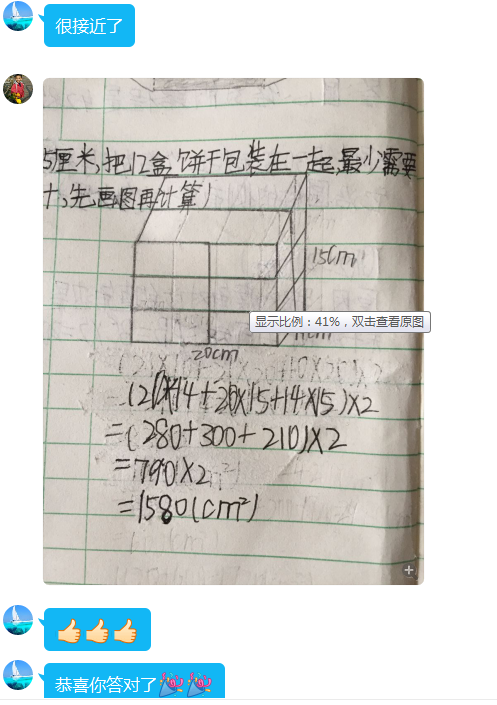 很接近了
5厘米,把12盒饼干包装在一起,最少需要
先画图再计算)
15cm
显示比例：41%，双击查看原图
20cm
(20×14+20×15+14×15)×2
=(280+300+210)×2
=790×2
=1580(cm²)
恭喜你答对了